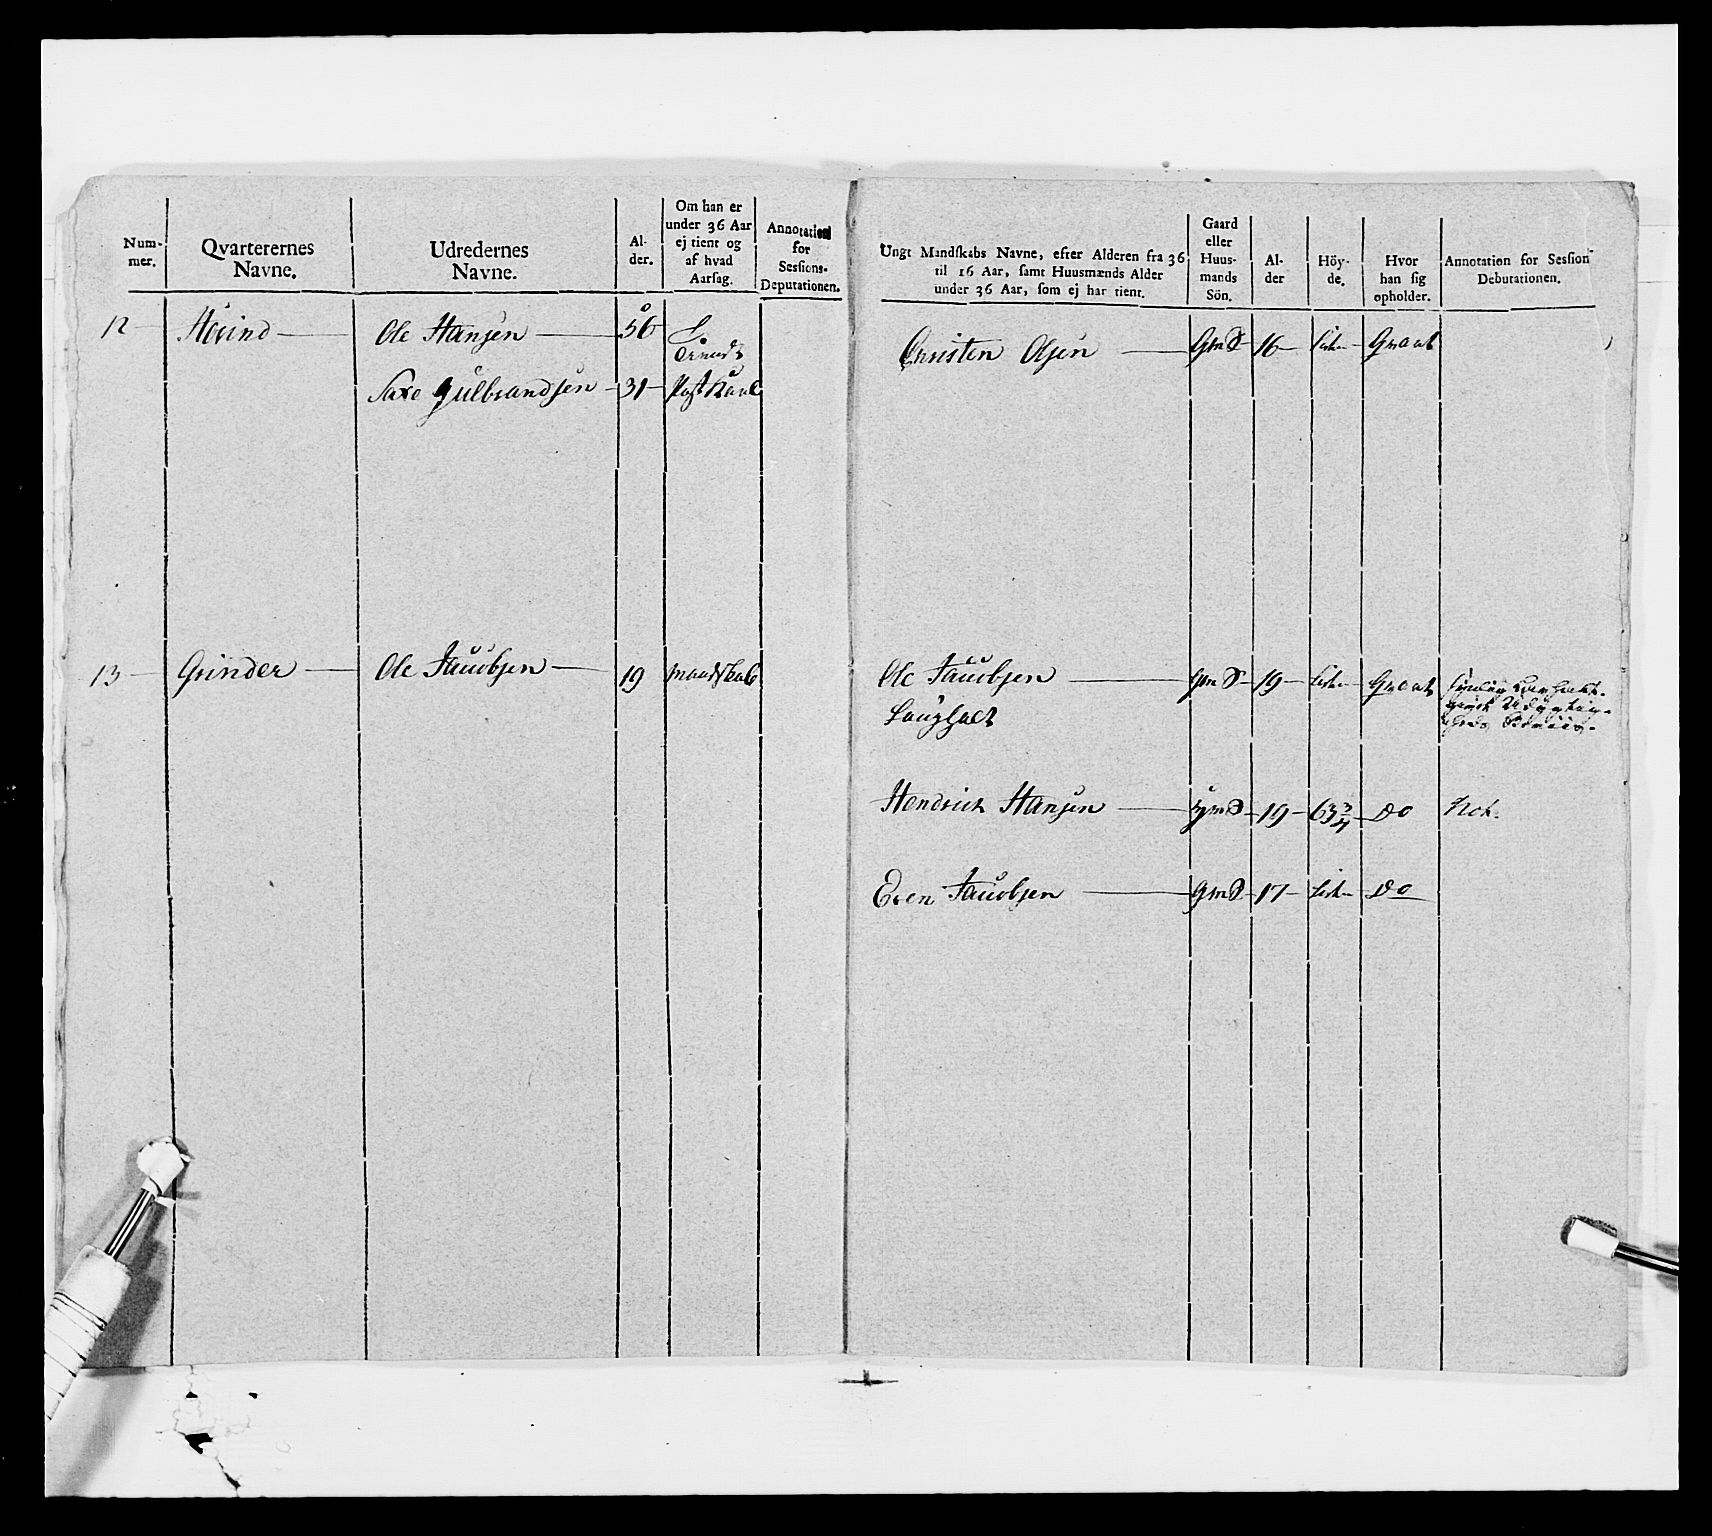 Num-
mer.
Qvarterernes
Navne.
Udredernes
Navne.
Al-
der.
Om han er
under 36 Aar
ej tient og
af hvad
Aarsag.
Annotation
for
Sessions-
Deputationen.
12 Hövind Ole Hansen 56
Saxe Gulbrandsen 31
13 Grinder Ole Jacobsen 19 mandskab
Ungt Mandskabs Navne, efter Alderen fra 36
til 16 Aar, samt Huusmænds Alder
under 36 Aar, som ej har tient.
Gaard
eller
Huus-
mands
Sön.
Al-
der
Höy-
de.
Hvor
han sig
opholder.
Annotation for Session
Debutationen.
Christen Olsen GmS 16 Liden Gaard
Ole Jacobsen gmS 19 Liden Gaard
Hendrich Hansen 19 63 3/4 Do Not.
Even Jacobsen gmS 17 Liden Do